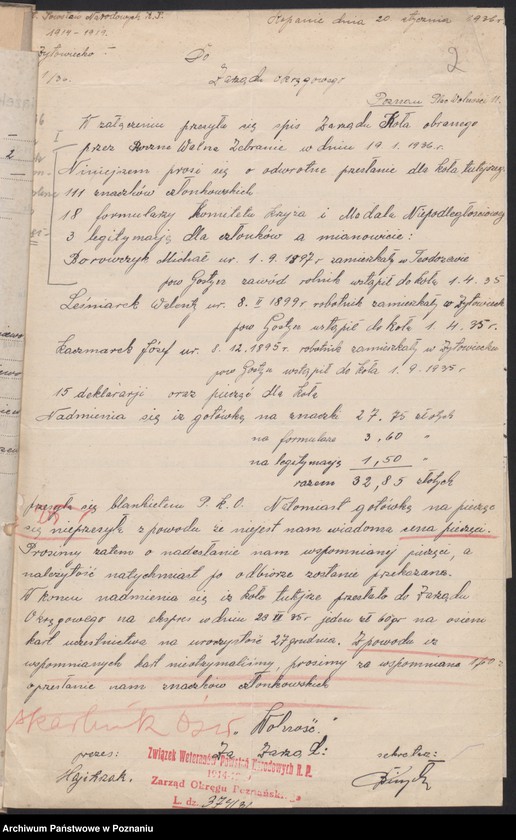 Powstań Narodowych R.P.
1914-1919.
Żytowiecko
Kopanie dnia 20 stycznia 1936 r
2
Do
Zarządu Okręgowego
Poznań Plac Wolności 11.
W załączeniu przesyła się spis Zarządu Koła obranego
przez Roczne Walne Zebranie w dniu 19.1.1936 r.
I
Niniejszem prosi się o odwrotne przesłanie dla koła tutejszeg.
111 znaczków członkowskich
18 formularzy Komitetu Krzyża i Medalu Niepodległościowej
3 legitymacji dla członków a mianowicie:
Borowczyk Michał ur. 1.9.1897 r zamieszkały w Teodozewie
pow Gostyn zawód rolnik wstąpił do koła 1.4.35
Leśniarek Walenty ur. 8. II 1899 r robotnik zamieszkały w Żytowiecku
pow Gostyn wstąpił do koła 1.4.35 r.
Kaczmarek Józef ur. 8.12.1895 r. robotnik zamieszkały w Żytowiecku
pow Gostyn wstąpił do koła 1.9.1935 r
15 deklaracji oraz pieczęć dla Koła
Nadmienia się iż gotówkę na znaczki 27.75 złotych
na formularze 3,60 "
na legitymacją 1,50 "
razem 32,85 złotych
przesyła się blankietem P.K.O. Natomiast gotówkę na pieczęć
się nieprzesyła z powodu że niejest nam wiadoma cena pieczęci.
Prosimy zatem o nadesłanie nam wspomnianej pieczęci, a
należytość natychmiast po odbiorze zostanie przekazana.
W końcu nadmienia się iż koło tutejsze przesłało do Zarządu
Okręgowego na ekspres w dniu 20 XII 35 r jeden zł 60 gr na osiem
kart uczestnictwa na uroczystość 27 grudnia. Z powodu iż
wspomnianych kart nieotrzymaliśmy, prosimy za wspomniane 1,60
o przesłanie nam znaczków członkowskich
Skarbnik
"Wolność"
Za Zarząd:
prezes:
sekretarz:
Związek Weteranów Powstań Narodowych R. P.
1914-19
Zarząd Okręgu Poznański
L. dz.
Archiwum Państwowe w Poznaniu